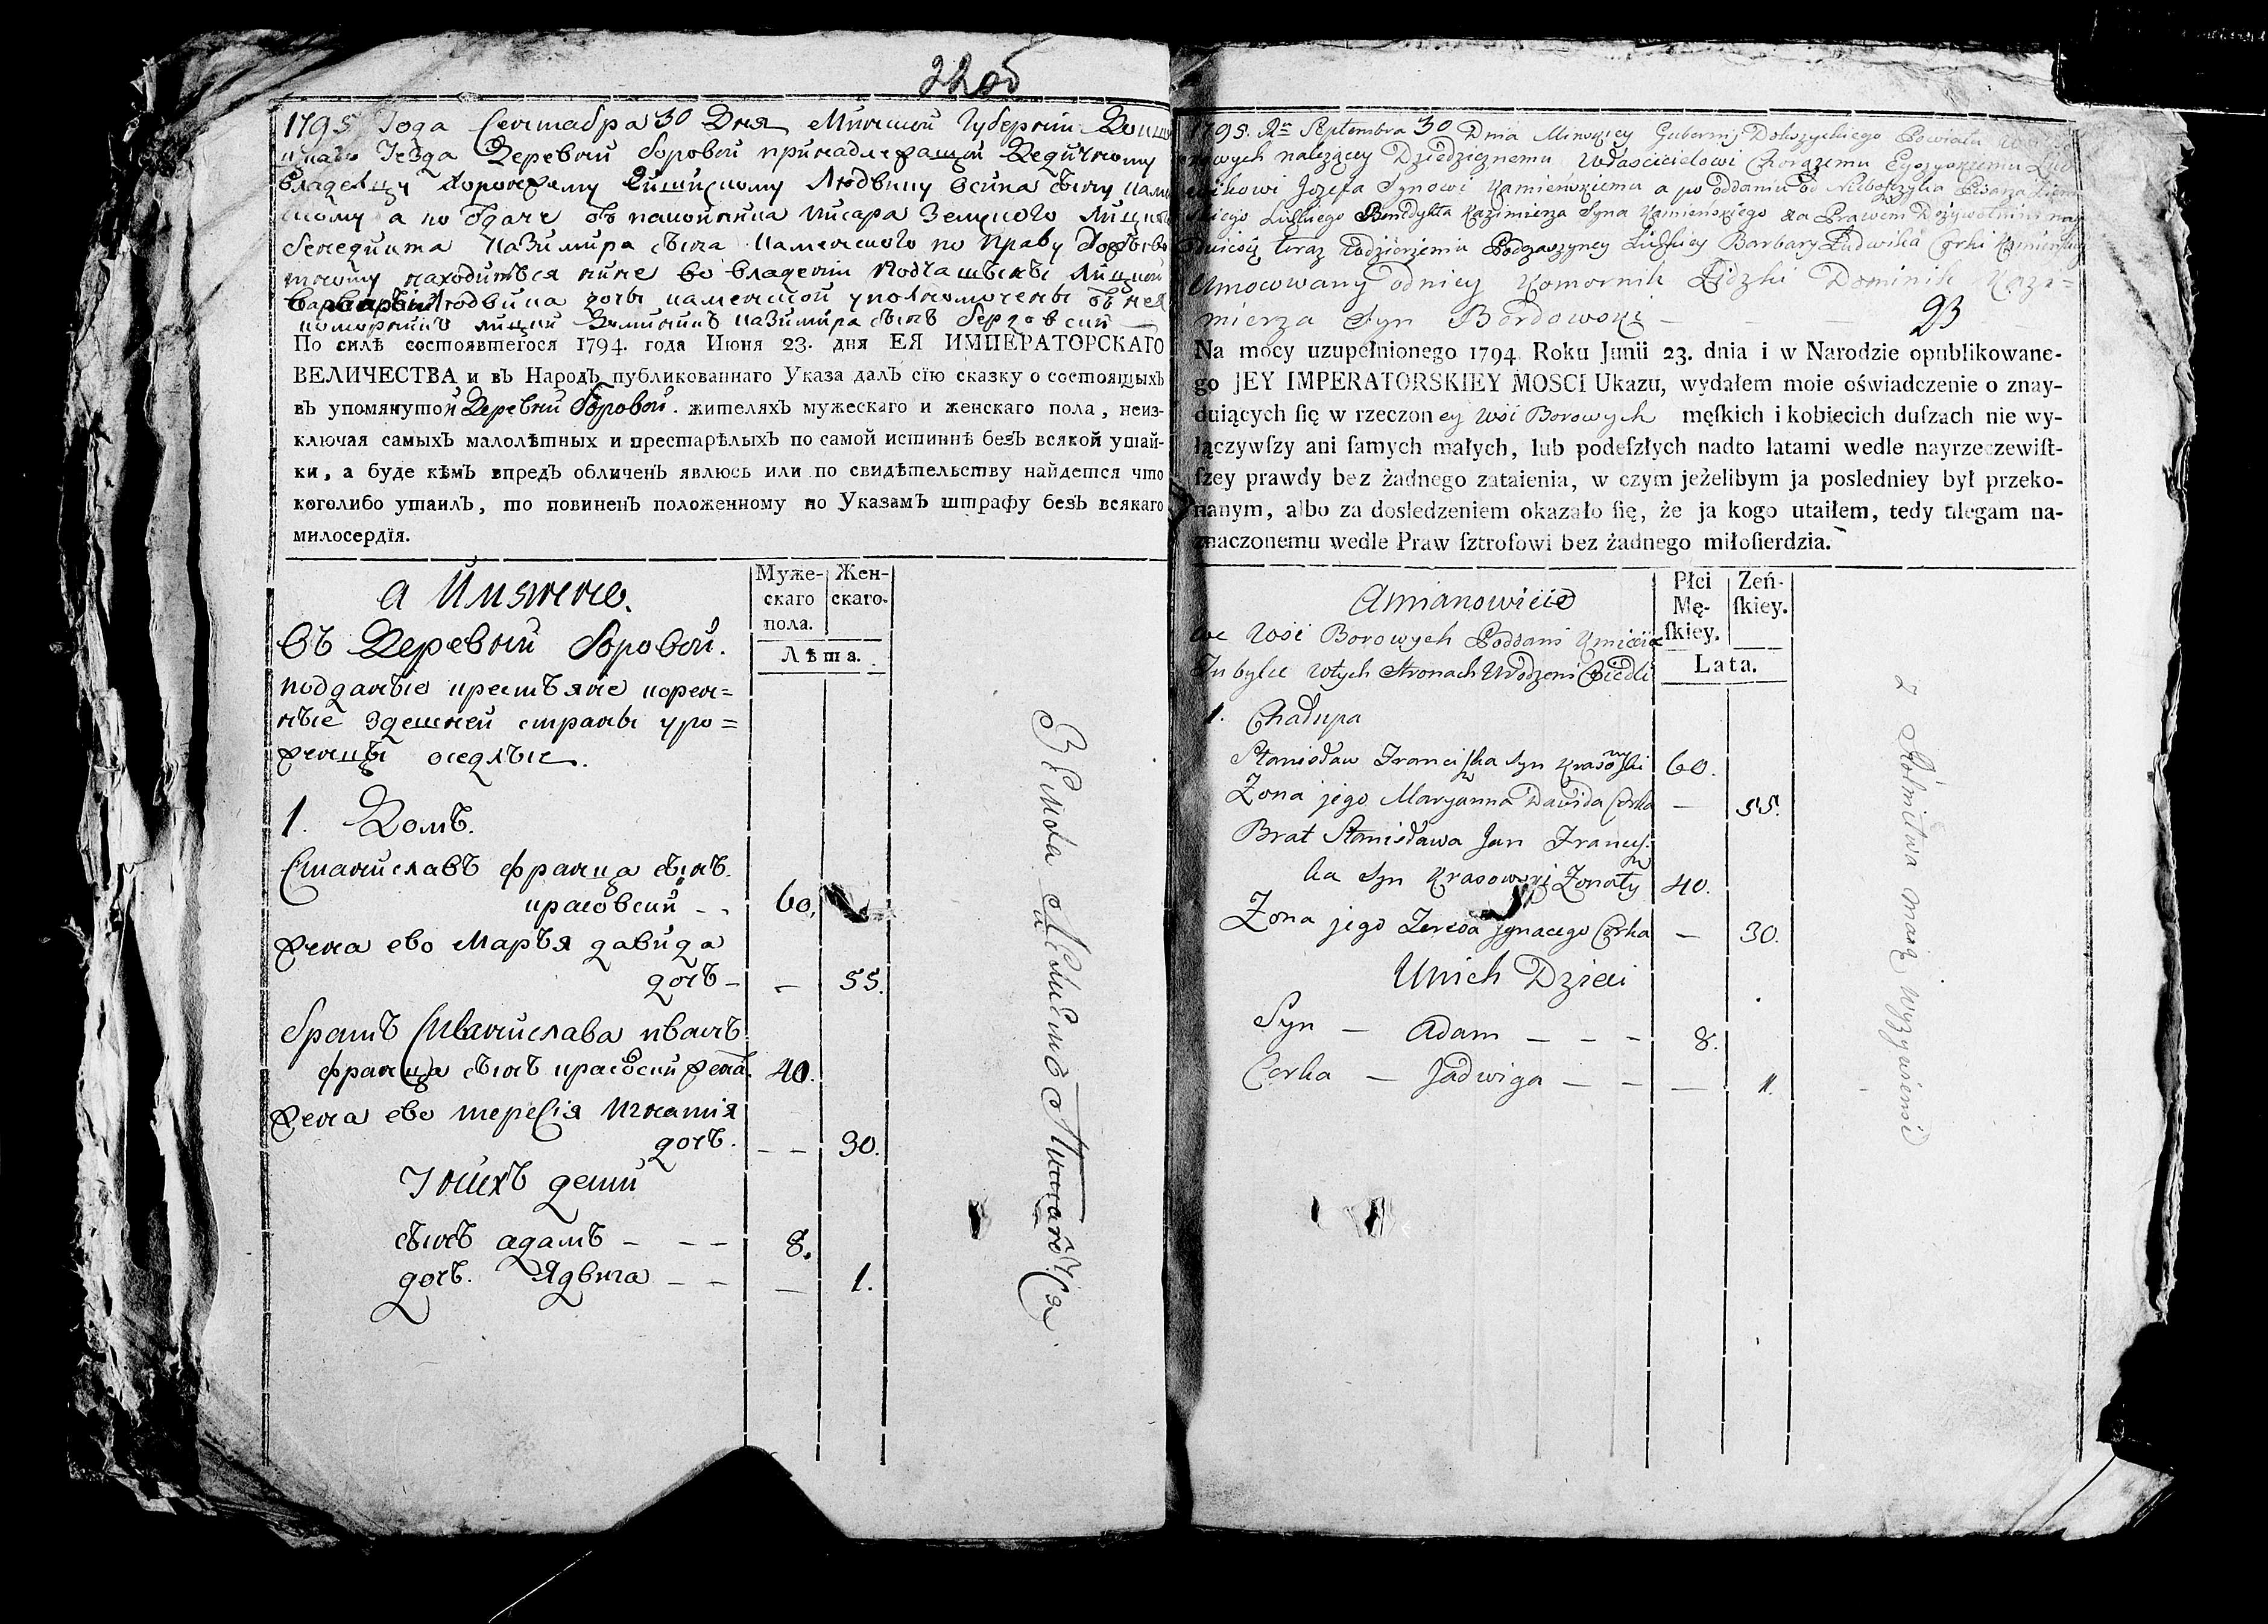 22об
1795 Года Сентабра 30 Дня Минской Губернии
Уезда Деревни Боровой принадлежащой Дедичному
владелцу Хоронжему Ейшискому Людвику Осипа сыну
а по отдаче отъ покойника писара Земского
Бенедикта Казимира сына Каменского по праву
находится ныне во владении Подчашынъы Лидской
Людвика дочъ Каменской уполномочены отъ нея
Казимира сынъ
По силѣ состоявшегося 1794. года Июня 23. дня ЕЯ ИМПЕРАТОРСКАГО
ВЕЛИЧЕСТВА и въ Народъ публикованнаго Указа далъ сїю сказку о состоящыхъ
въ упомянутой Деревни Боровой. жителяхъ мужескаго и женскаго пола, неиз-
ключая самыхъ малолѣтныхъ и престарѣлыхъ по самой истиннѣ безъ всякой утай-
ки, а буде кѣмъ впредъ обличенъ явлюсь или по свидѣтельству найдется что
коголибо утаилъ, то повиненъ положенному по Указамъ штрафу безъ всякаго
милосердїя.
а Имянно.
Муже-
скаго
пола.
Жен-
скаго.
Лѣта.
въ Деревни Боровой.
подданые крестъяне корен=
ные здешней страны уро=
женцы оседлые.
1. Домъ.
Станиславъ Франца сынъ.
красовский - - 60,
Жена ево Маръя давида
дочъ - — 55.
братъ Станислава иванъ
франца сынъ красовский жена. 40.
Жена ево тересия Игнатия
дочъ. — — 30.
У нихъ дети
сынъ адамъ - - - 8.
дочъ. Ядвига - - — 1.
1795. Rᵘ Septembra 30 Dnia Minskiey Gubernij Dokszyckiego Powiatu
należącey Dziedzicznemu Właścicielowi Chorążemu Eyszyskiemu
Jozefa Synowi Kamieńskiemu a po oddaniu od Nieboszczyka Pisarza
Lidzkiego Benedykta Kazimierza Syna Kamieńskiego za Prawem Dożywotnim
teraz w dzierżeniu Podczaszyney Lidzkiey Barbary Ludwika Corki
Umocowany od niey Komornik Lidzki Dominik Kazi=
mierza Syn Bordowski — — — 23
Na mocy uzupełnionego 1794 Roku Junii 23. dnia i w Narodzie opublikowane-
go JEY IMPERATORSKIEY MOSCI Ukazu, wydałem moie oświadczenie o znay-
duiących ſię w rzeczoney wsi Borowych męſkich i kobiecich duſzach nie wy-
łączywſzy ani ſamych małych, lub podeſzłych nadto latami wedle nayrzeczewiſt-
ſzey prawdy bez żadnego zataienia, w czym jeżelibym ja posledniey był przeko-
nanym, albo za dosledzeniem okazało ſię, że ja kogo utaiłem, tedy ulegam na-
znaczonemu wedle Praw ſztrofowi bez żadnego miłoſierdzia.
Amianowicie
Płci
Mę-
ſkiey.
Zeń-
ſkiey.
Lata.
we Wśi Borowych Poddani Kmiecie
Tubylce wtych Stronach Urodzeni Osiedli
1. Chałupa
Stanisław Franciſzka Syn Krasowski 60.
Zona jego Maryanna Dawida Corka — 55.
Brat Stanisława Jan Franciſz-
ka Syn Krasowski Zonaty 40.
Zona jego Teressa Jgnacego Corka — 30.
Unich Dzieci
Syn — Adam — — — 8.
Corka — Jadwiga — — — 1.
z Rolnictwa mają wyzywienie